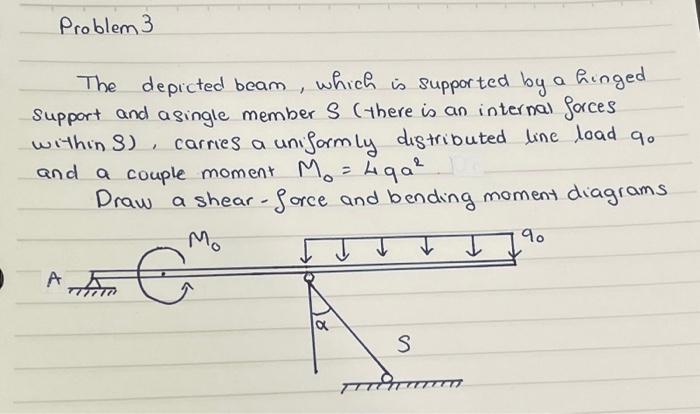 Problem 3
The depicted beam, which is supported by a hinged
support and a single member S (there is an internal forces
within S), carries a uniformly distributed line load q₀
and a couple moment M₀ = 4qa²
Draw a shear-force and bending moment diagrams
M₀
q₀
A
α
S